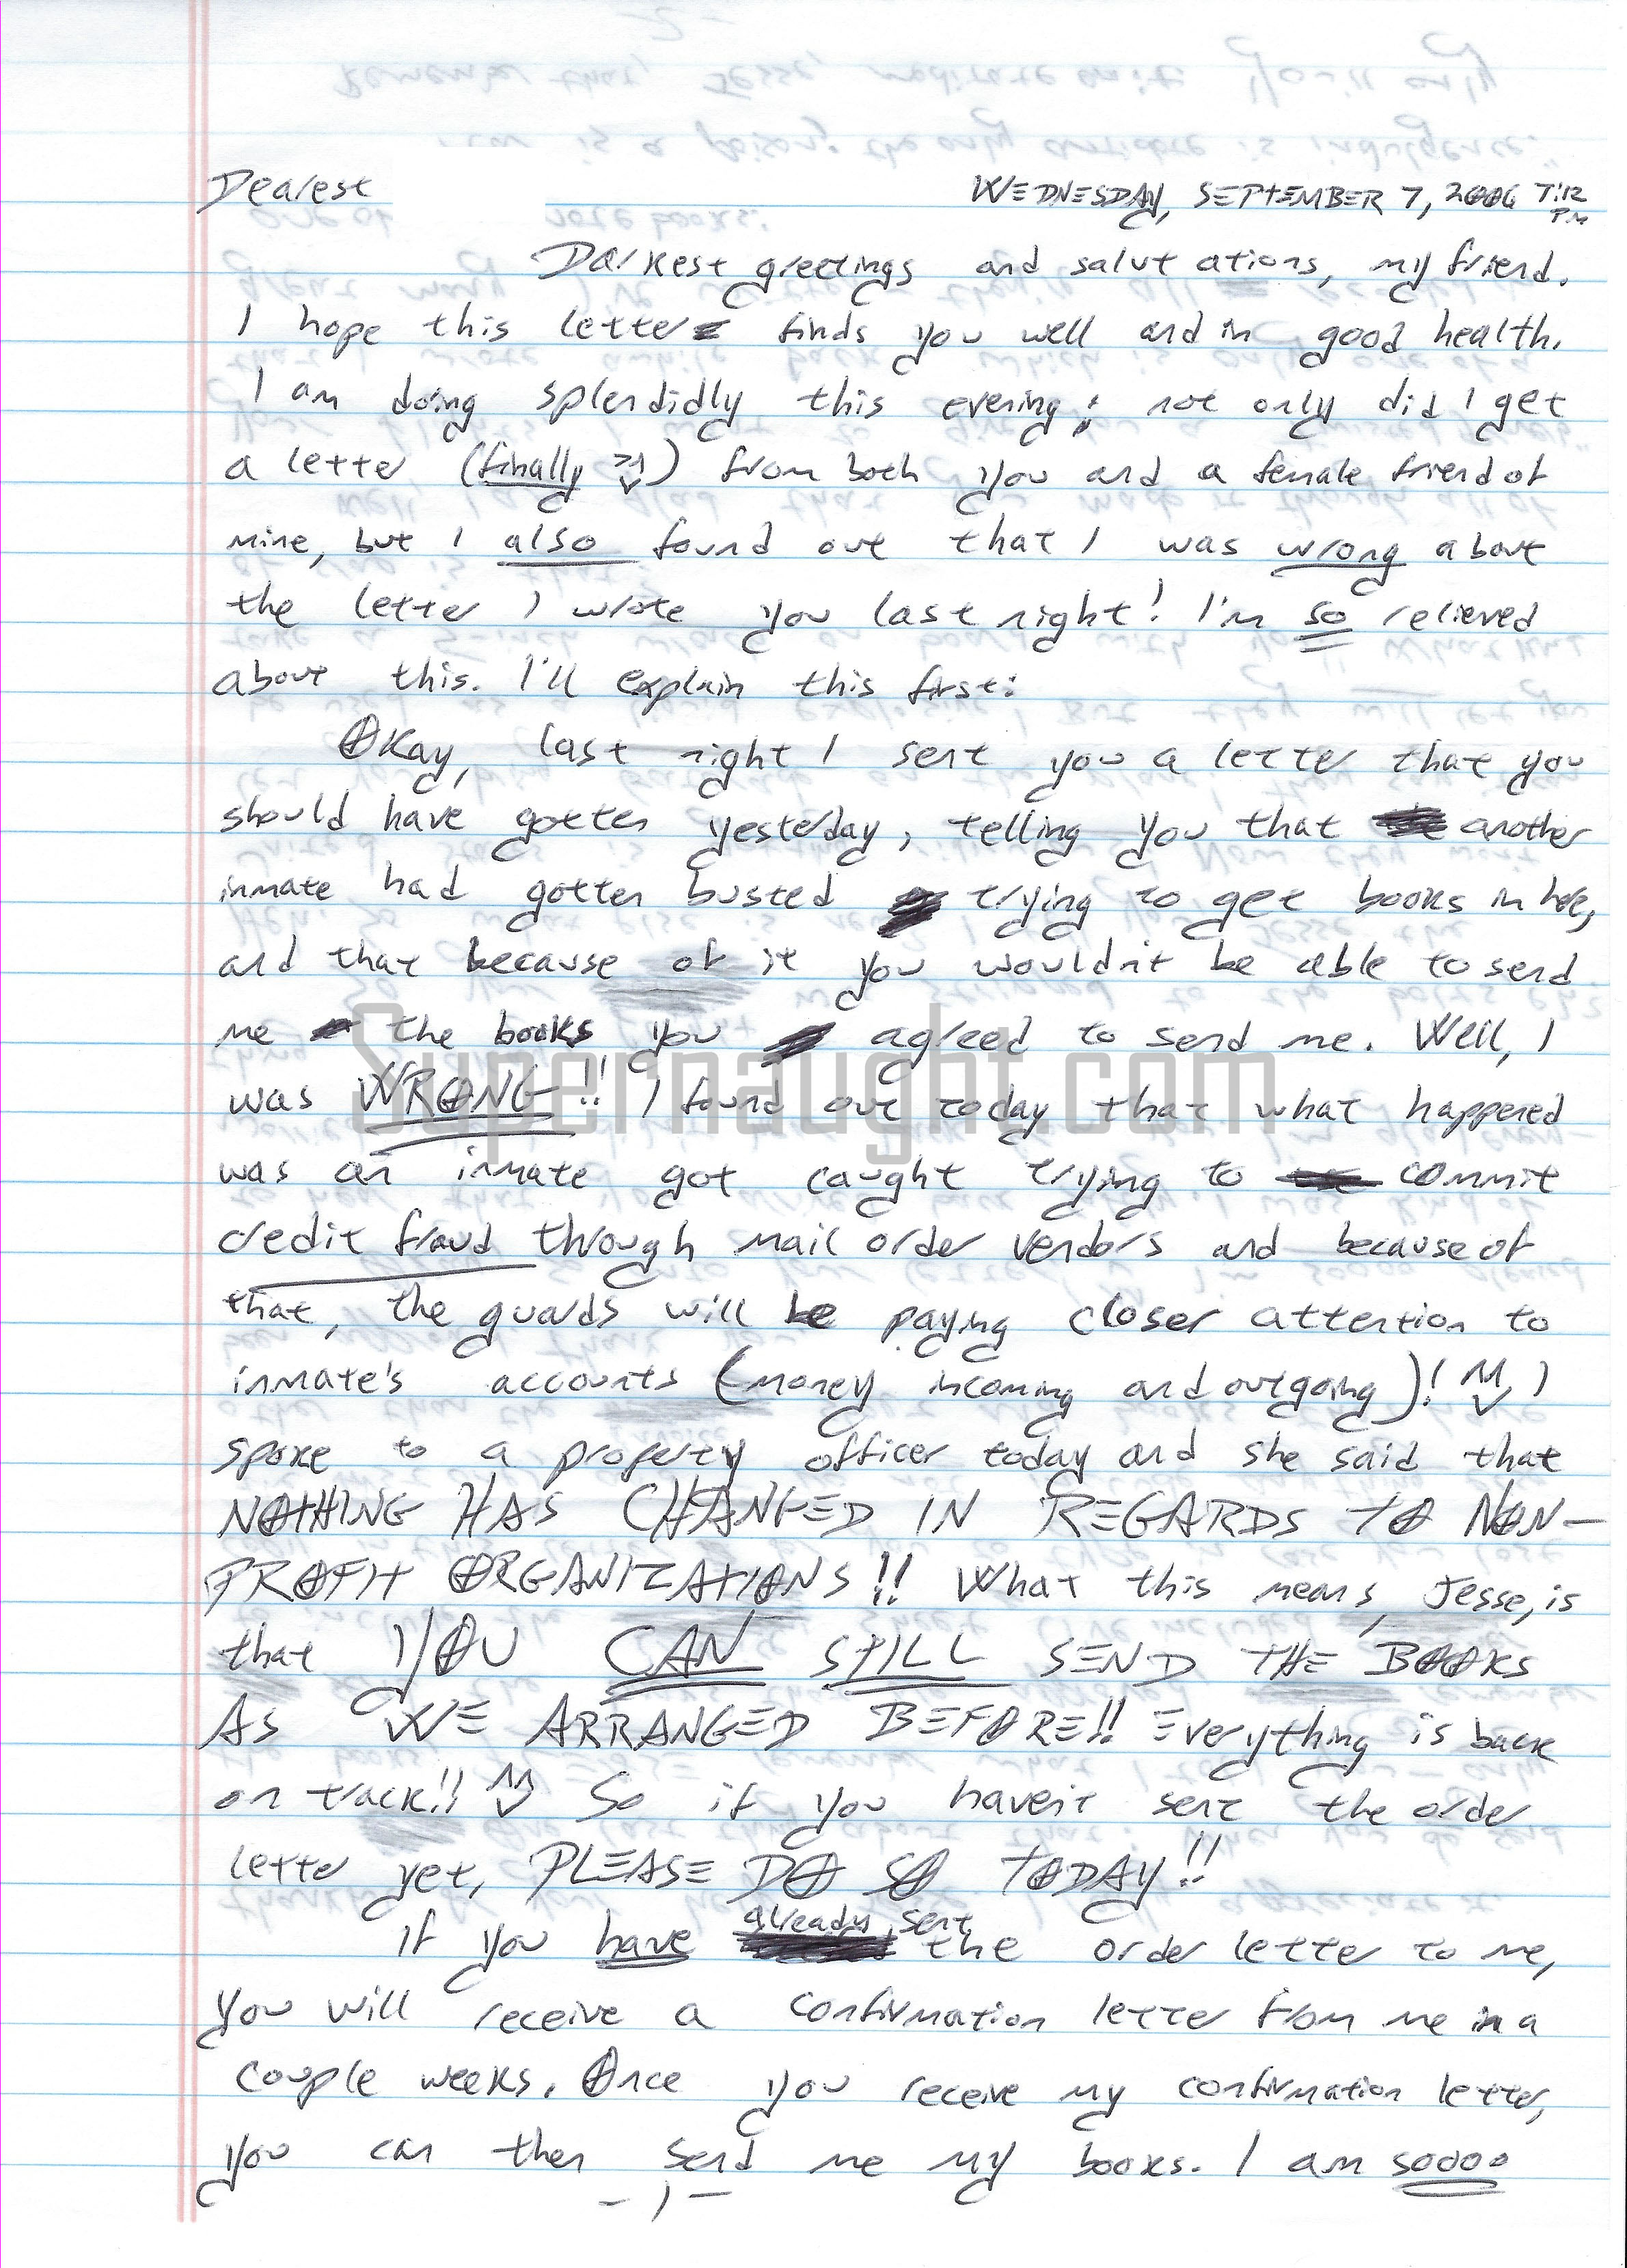 Dearest
WEDNESDAY, SEPTEMBER 7, 2006 7:12 PM
Darkest greetings and salutations, my friend.
I hope this letter finds you well and in good health.
I am doing splendidly this evening; not only did I get
a letter (finally) from both you and a female friend of
mine, but I also found out that I was wrong about
the letter I wrote you last night! I'm so relieved
about this. I'll explain this first:
Okay, last night I sent you a letter that you
should have gotten yesterday, telling you that another
inmate had gotten busted trying to get books in here,
and that because of it you wouldn't be able to send
me the books you agreed to send me. Well, I
was WRONG!! I found out today that what happened
was an inmate got caught trying to commit
credit fraud through mail order vendors and because of
that, the guards will be paying closer attention to
inmate's accounts (money incoming and outgoing)! I
spoke to a property officer today and she said that
NOTHING HAS CHANGED IN REGARDS TO NON-
PROFIT ORGANIZATIONS!! What this means, Jesse, is
that YOU CAN STILL SEND THE BOOKS
AS WE ARRANGED BEFORE!! Everything is back
on track!! So if you haven't sent the order
letter yet, PLEASE DO SO TODAY!!
If you have already sent the order letter to me,
you will receive a confirmation letter from me in a
couple weeks. Once you receive my confirmation letter,
you can then send me my books. I am soooo
-1-
Supernaught.com